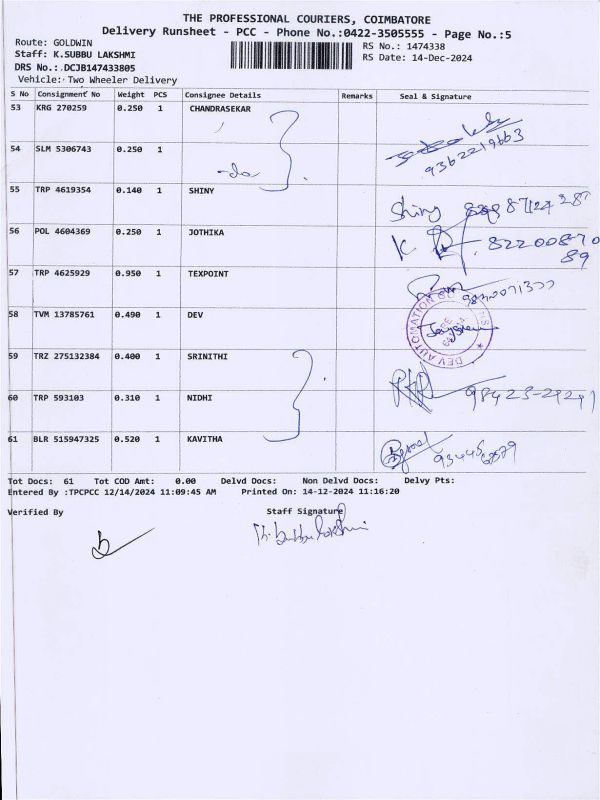 THE PROFESSIONAL COURIERS, COIMBATORE
Delivery Runsheet - PCC - Phone No.:0422-3505555 - Page No.:5
Route: GOLDWIN
Staff: K.SUBBU LAKSHMI
DRS No.:.DCJB147433805
Vehicle: Two Wheeler Delivery
RS No.: 1474338
RS Date: 14-Dec-2024
S No Consignment No Weight PCS Consignee Details Remarks Seal & Signature
53 KRG 270259 0.250 1 CHANDRASEKAR
54 SLM 5306743 0.250 1 -do 9362219663
55 TRP 4619354 0.140 1 SHINY Shiny
56 POL 4604369 0.250 1 JOTHIKA 82200870
89
57 TRP 4625929 0.950 1 TEXPOINT
58 TVM 13785761 0.490 1 DEV DEV AUTOMATION
59 TRZ 275132384 0.400 1 SRINITHI
60 TRP 593103 0.310 1 NIDHI 98423-29291
61 BLR 515947325 0.520 1 KAVITHA
Tot Docs: 61 Tot COD Amt: 0.00 Delvd Docs: Non Delvd Docs: Delvy Pts:
Entered By :TPCPCC 12/14/2024 11:09:45 AM Printed On: 14-12-2024 11:16:20
Verified By Staff Signature
K. Subbulakshmi